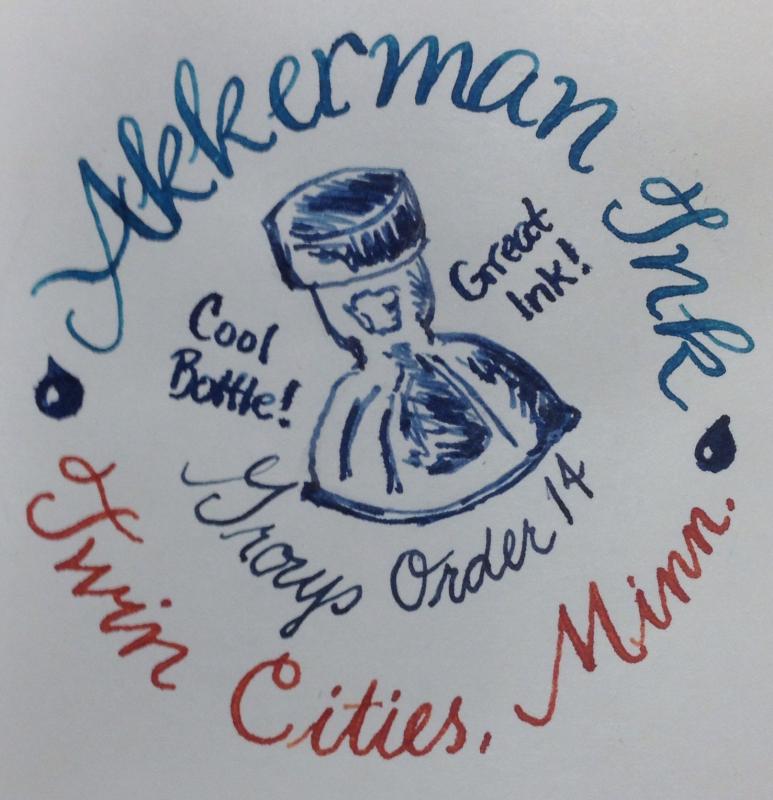 Akkerman Ink
Great
Ink!
Cool
Bottle!
Group Order 14
Twin Cities, Minn.